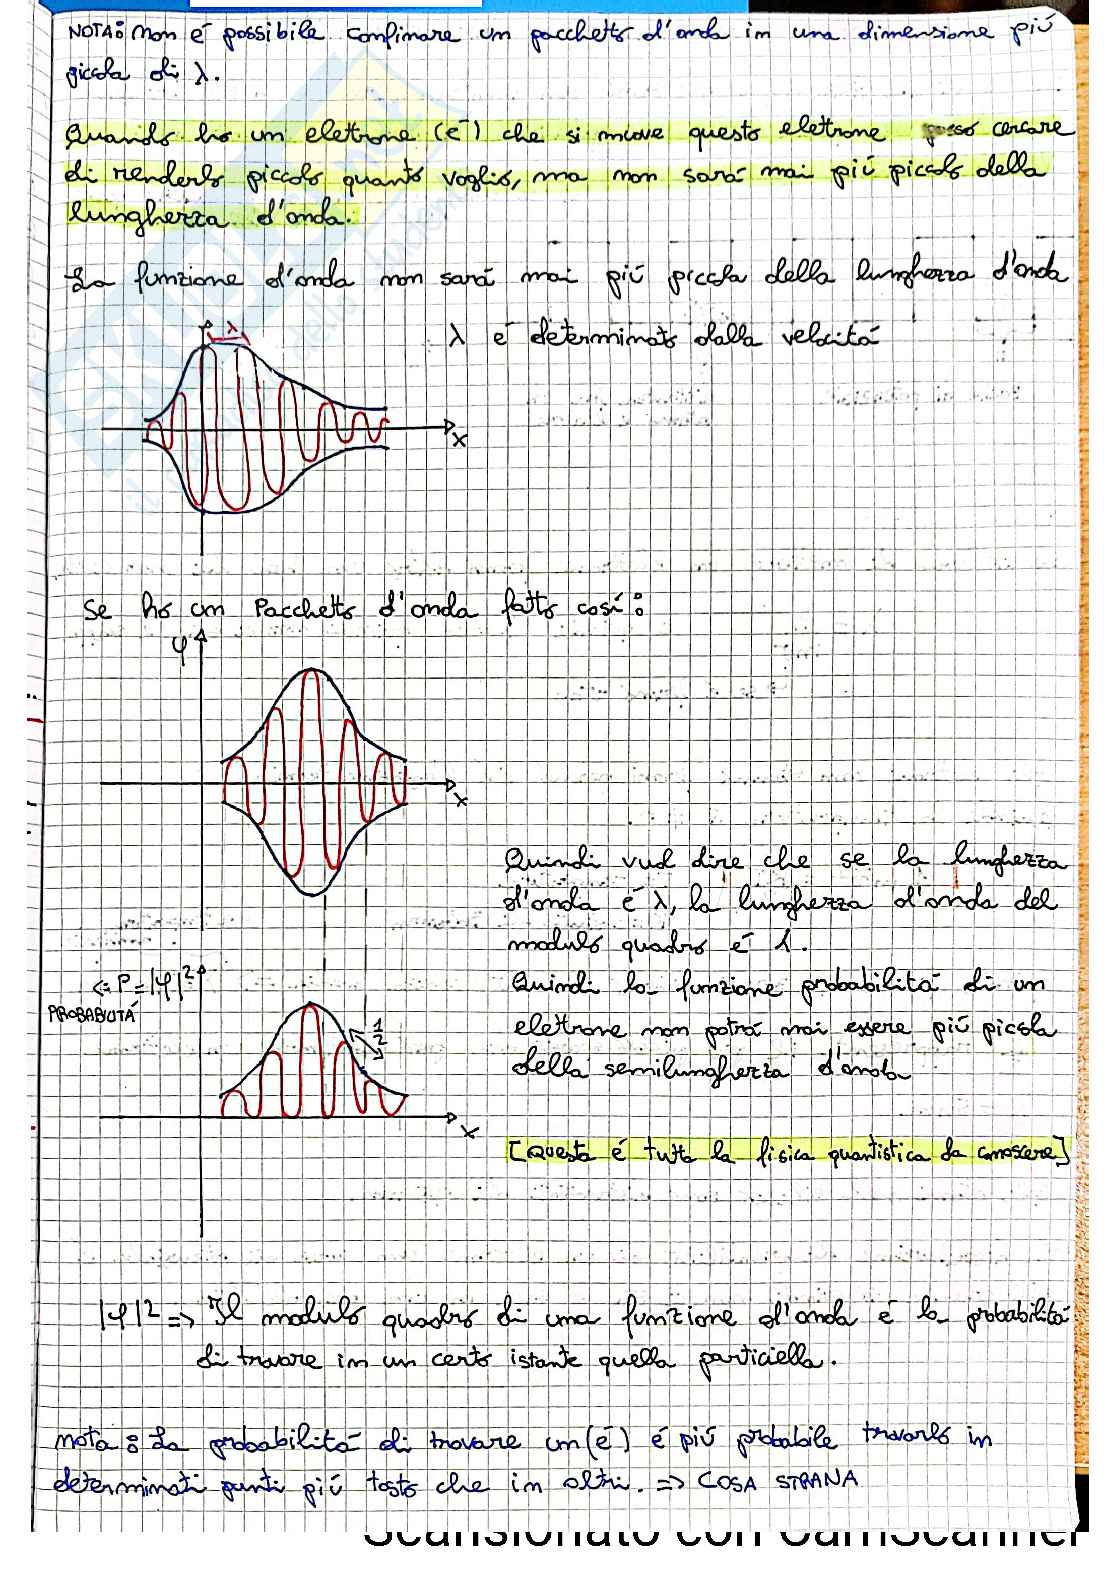 NOTA: non é possibile confinare un pacchetto d'onda in una dimensione piú
piccola di λ.
Quando ho un elettrone (e⁻) che si muove questo elettrone posso cercare
di renderlo piccolo quanto voglio, ma non sará mai piú piccolo della
lunghezza d'onda.
La funzione d'onda non sará mai piú piccola della lunghezza d'onda
λ
λ é determinato dalla velocitá
x
Se ho un Pacchetto d'onda fatto cosí:
φ
x
Quindi vuol dire che se la lunghezza
d'onda é λ, la lunghezza d'onda del
modulo quadro é
Quindi la funzione probabilitá di un
elettrone non potrá mai essere piú piccola
della semilunghezza d'onda
<= P=|φ|²
PROBABILITÁ
x
[Questa é tutta la fisica quantistica da conoscere]
|φ|² => Il modulo quadro di una funzione d'onda é la probabilitá
di trovare in un certo istante quella particella.
nota: La probabilitá di trovare un (e⁻) é piú probabile trovarlo in
determinati punti piú tosto che in altri. => COSA STRANA
Scansionato con CamScanner